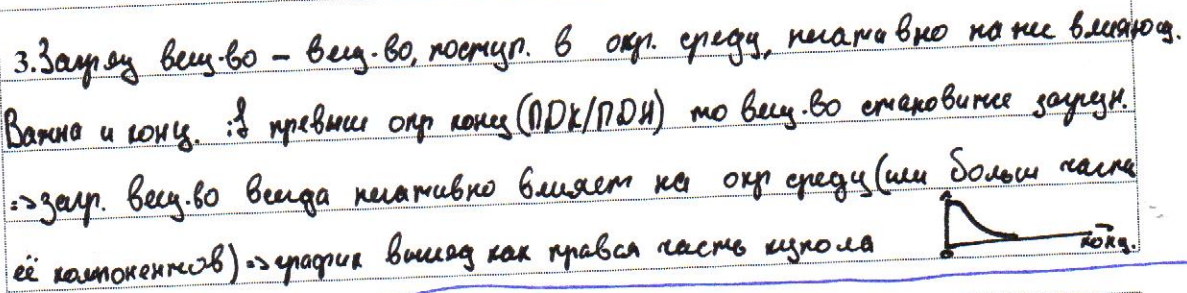 3. Загряз вещ-во – вещ-во, поступ. в окр. среду, негативно на нее влияющ.
Важна и конц. : превыш опр конц (ПДК/ПДН) то вещ-во становится загрязн.
=> загр. вещ-во всегда негативно влияет на окр среду (или больш часть
её компонентов) => график выгляд как правая часть купола
конц.